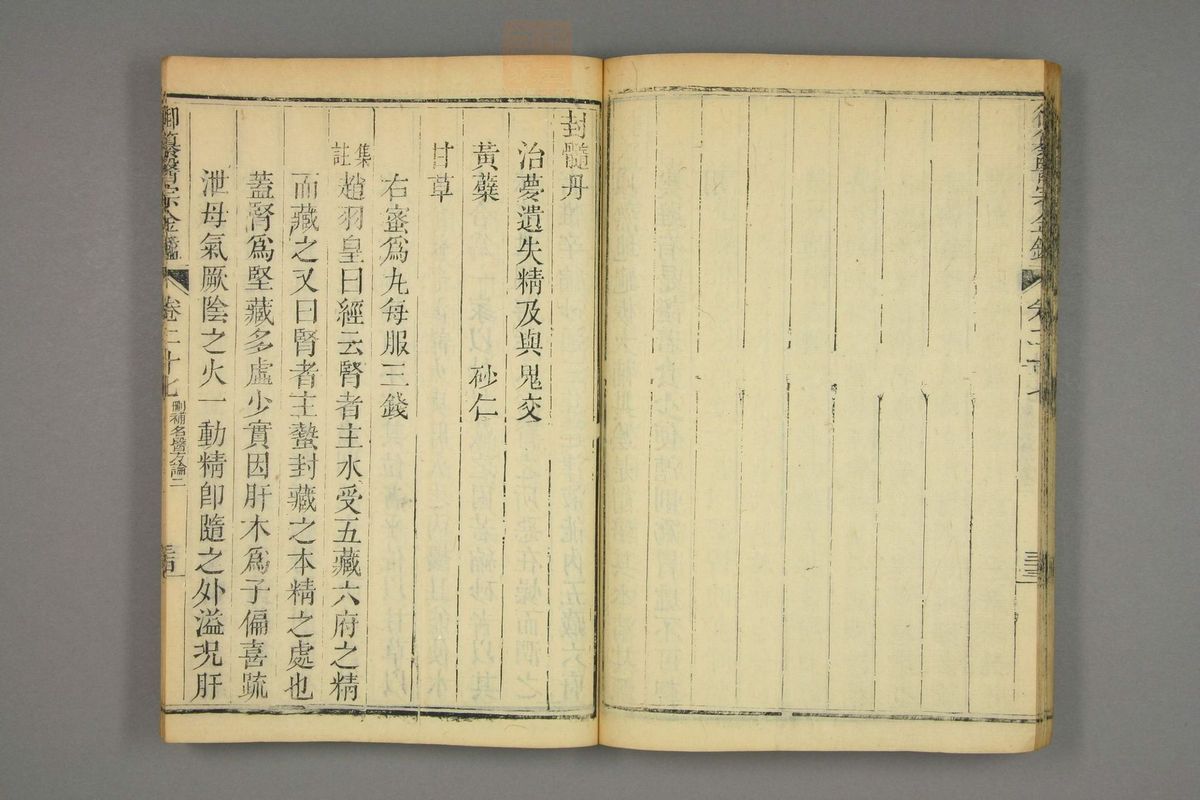 封髓丹
治夢遺失精及與鬼交
黃蘗　砂仁
甘草
右蜜為丸每服三錢
集註
趙羽皇曰經云腎者主水受五藏六府之精
而藏之又曰腎者主蟄封藏之本精之處也
蓋腎為堅藏多虛少實因肝木為子偏喜疏
泄母氣厥陰之火一動精即隨之外溢況肝
御纂醫宗金鑑　卷二十七　刪補名醫方論二　三古